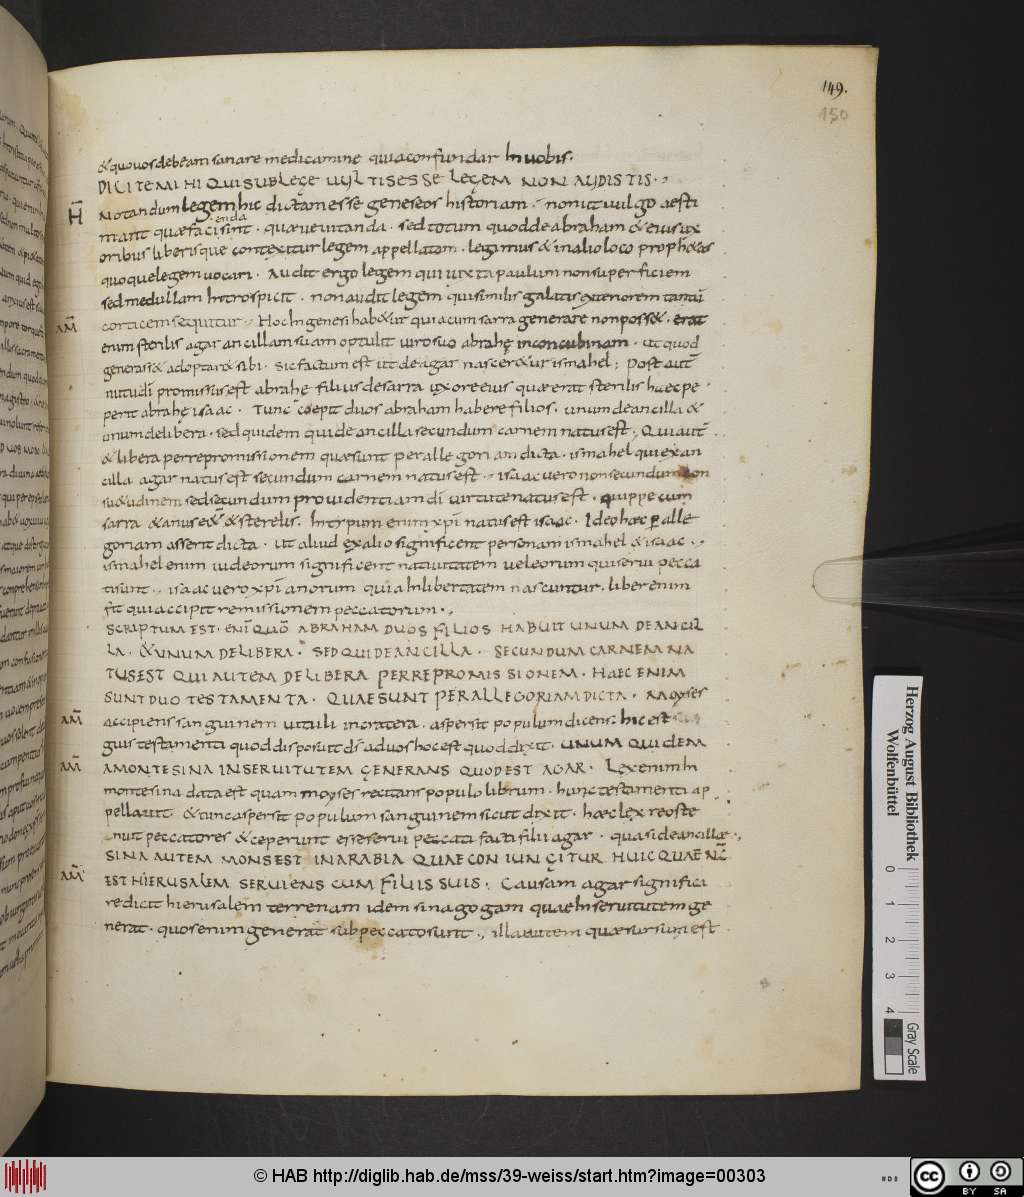 149.
150
& quo vos debeam sanare medicamine quia confundar In uobis.
DICITE MIHI QUI SUB LEGE VULTIS ESSE LEGEM NON AUDISTIS.
H̄ Notandum legem hic dictam esse geneseos historiam. non ut uulgo aesti
mant quae facienda sint. quae ue uitanda. sed totum quod de abraham & eius ux
oribus liberisque contexitur legem appellatam. legimus & in alio loco proph&as
quoque legem uocari. Audit ergo legem qui iuxta paulum non superficiem
sed medullam Introspicit. non audit legem qui similis galatis exteriorem tantū
AM̄ corticem sequitur. Hoc In genesi hab&ur quia cum sarra generare non poss&. erat
enim sterilis agar ancillam suam optulit uiro suo abrahę in concubinam. ut quod
generass& adoptar& sibi. Sic factum est ut de agar nascer&ur ismahel; Post aut̄
nutu dī promissus est abrahę filius de sarra uxore eius quae erat sterilis haec pe
perit abrahę isaac. Tunc coepit duos abraham habere filios. unum de ancilla &
unum de libera. sed quidem qui de ancilla secundum carnem natus est. Qui aut̄
& libera per repromissionem quae sunt per allegoriam dicta. ismahel qui ex an
cilla agar natus est secundum carnem natus est. isaac uero non secundum con
su&udinem sed secundum prouidentiam dī uirtute natus est. quippe cum
sarra & anus ess& & sterelis. In typum enim xp̄i natus est isaac. Ideo haec p alle
goriam asserit dicta. ut aliud ex alio significent personam ismahel & isaac.
ismahel enim iudeorum significent natiuitatem ueleorum qui serui pecca
ti sunt. isaac uero xp̄ianorum quia In libertatem nascuntur. liber enim
fit qui accipit remissionem peccatorum.
SCRIPTUM EST. ENĪ QUŌ ABRAHAM DUOS FILIOS HABUIT UNUM DE ANCIL
LA. & UNUM DE LIBERA. SED QUI DE ANCILLA. SECUNDUM CARNEM NA
TUS EST QUI AUTEM DE LIBERA PER REPROMISSIONEM. HAEC ENIM
SUNT DUO TESTAMENTA. QUAE SUNT PER ALLEGORIAM DICTA. Moyses
AM̄ accipiens sanguinem uituli in cratera. aspersit populum dicens. hic est san
guis testamenti quod disposuit dś ad uos hoc est quod dixit. UNUM QUIDEM
AM̄ A MONTE SINA IN SERVITUTEM GENERANS QUOD EST AGAR. Lex enim In
monte sina data est quam moyses recitans populo librum. hunc testamenti ap
pellauit. & tunc aspersit populum sanguinem sicut dixit. haec lex reos te
nuit peccatores & ceperunt esse serui peccati facti filii agar. quasi de ancillae
SINA AUTEM MONS EST IN ARABIA QUAE CONIUNGITUR HUIC QUAE NC̄
AM̄ EST HIERUSALEM SERUIENS CUM FILIIS SUIS; Causam agar significi
re dicit hierusalem terrenam idem sinagogam quae In seruitutem ge
nerat. quos enim generat sub peccato sunt. illa autem quae sursum est
Herzog August Bibliothek
Wolfenbüttel
0 1 2 3 4
Gray Scale
© HAB http://diglib.hab.de/mss/39-weiss/start.htm?image=00303
cc BY SA